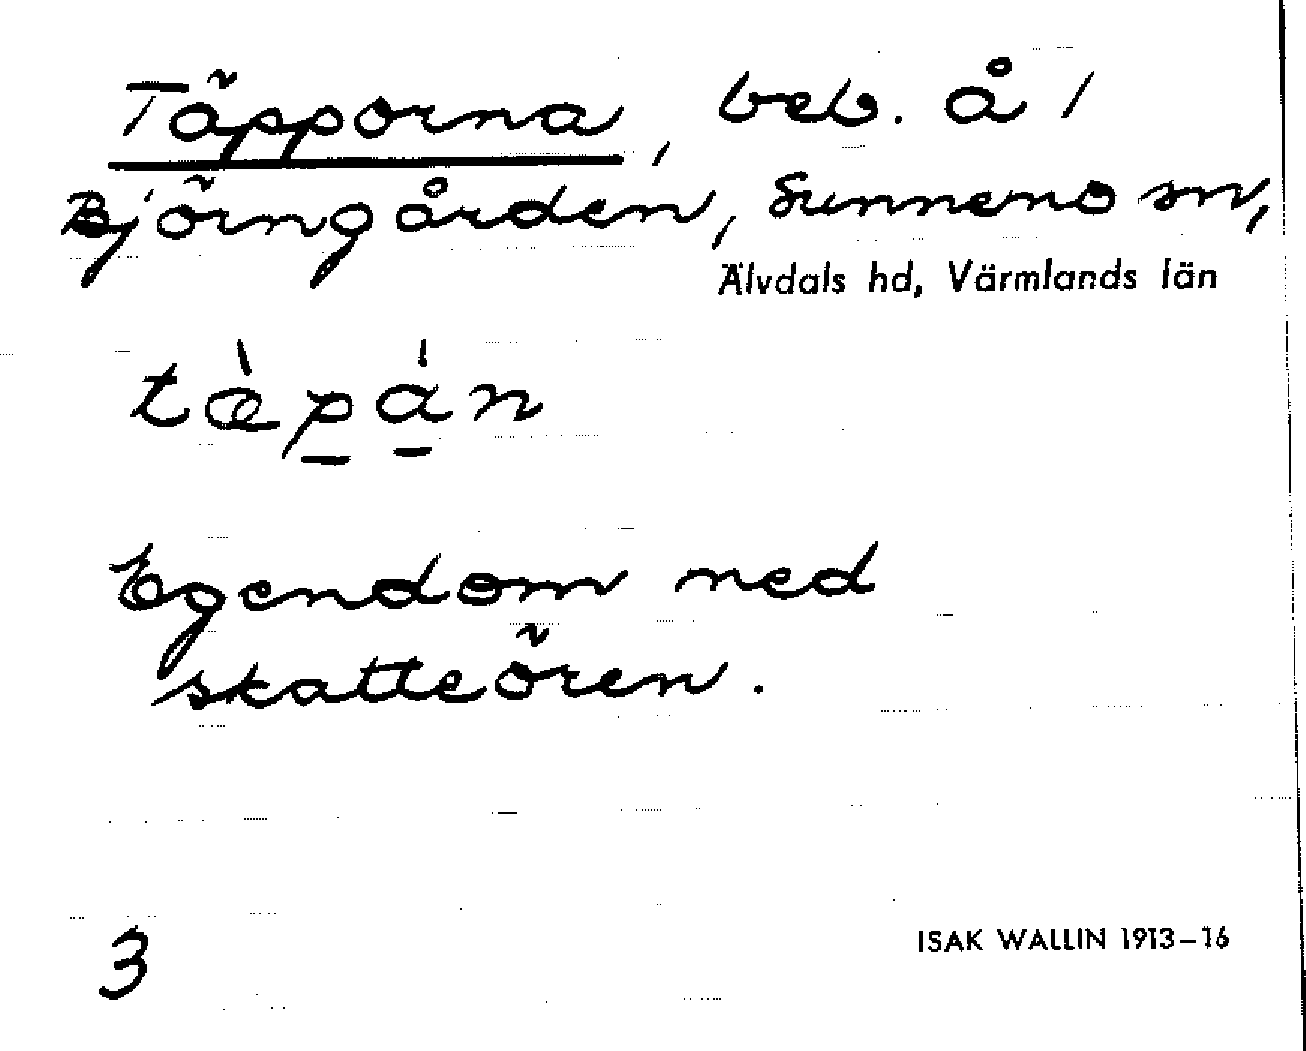 Täpporna, beb. å 1
Björngården, Sunnemo sn,
Älvdals hd, Värmlands län
tæ̀pán
Egendom med
skatteören.
3
ISAK WALLIN 1913–16